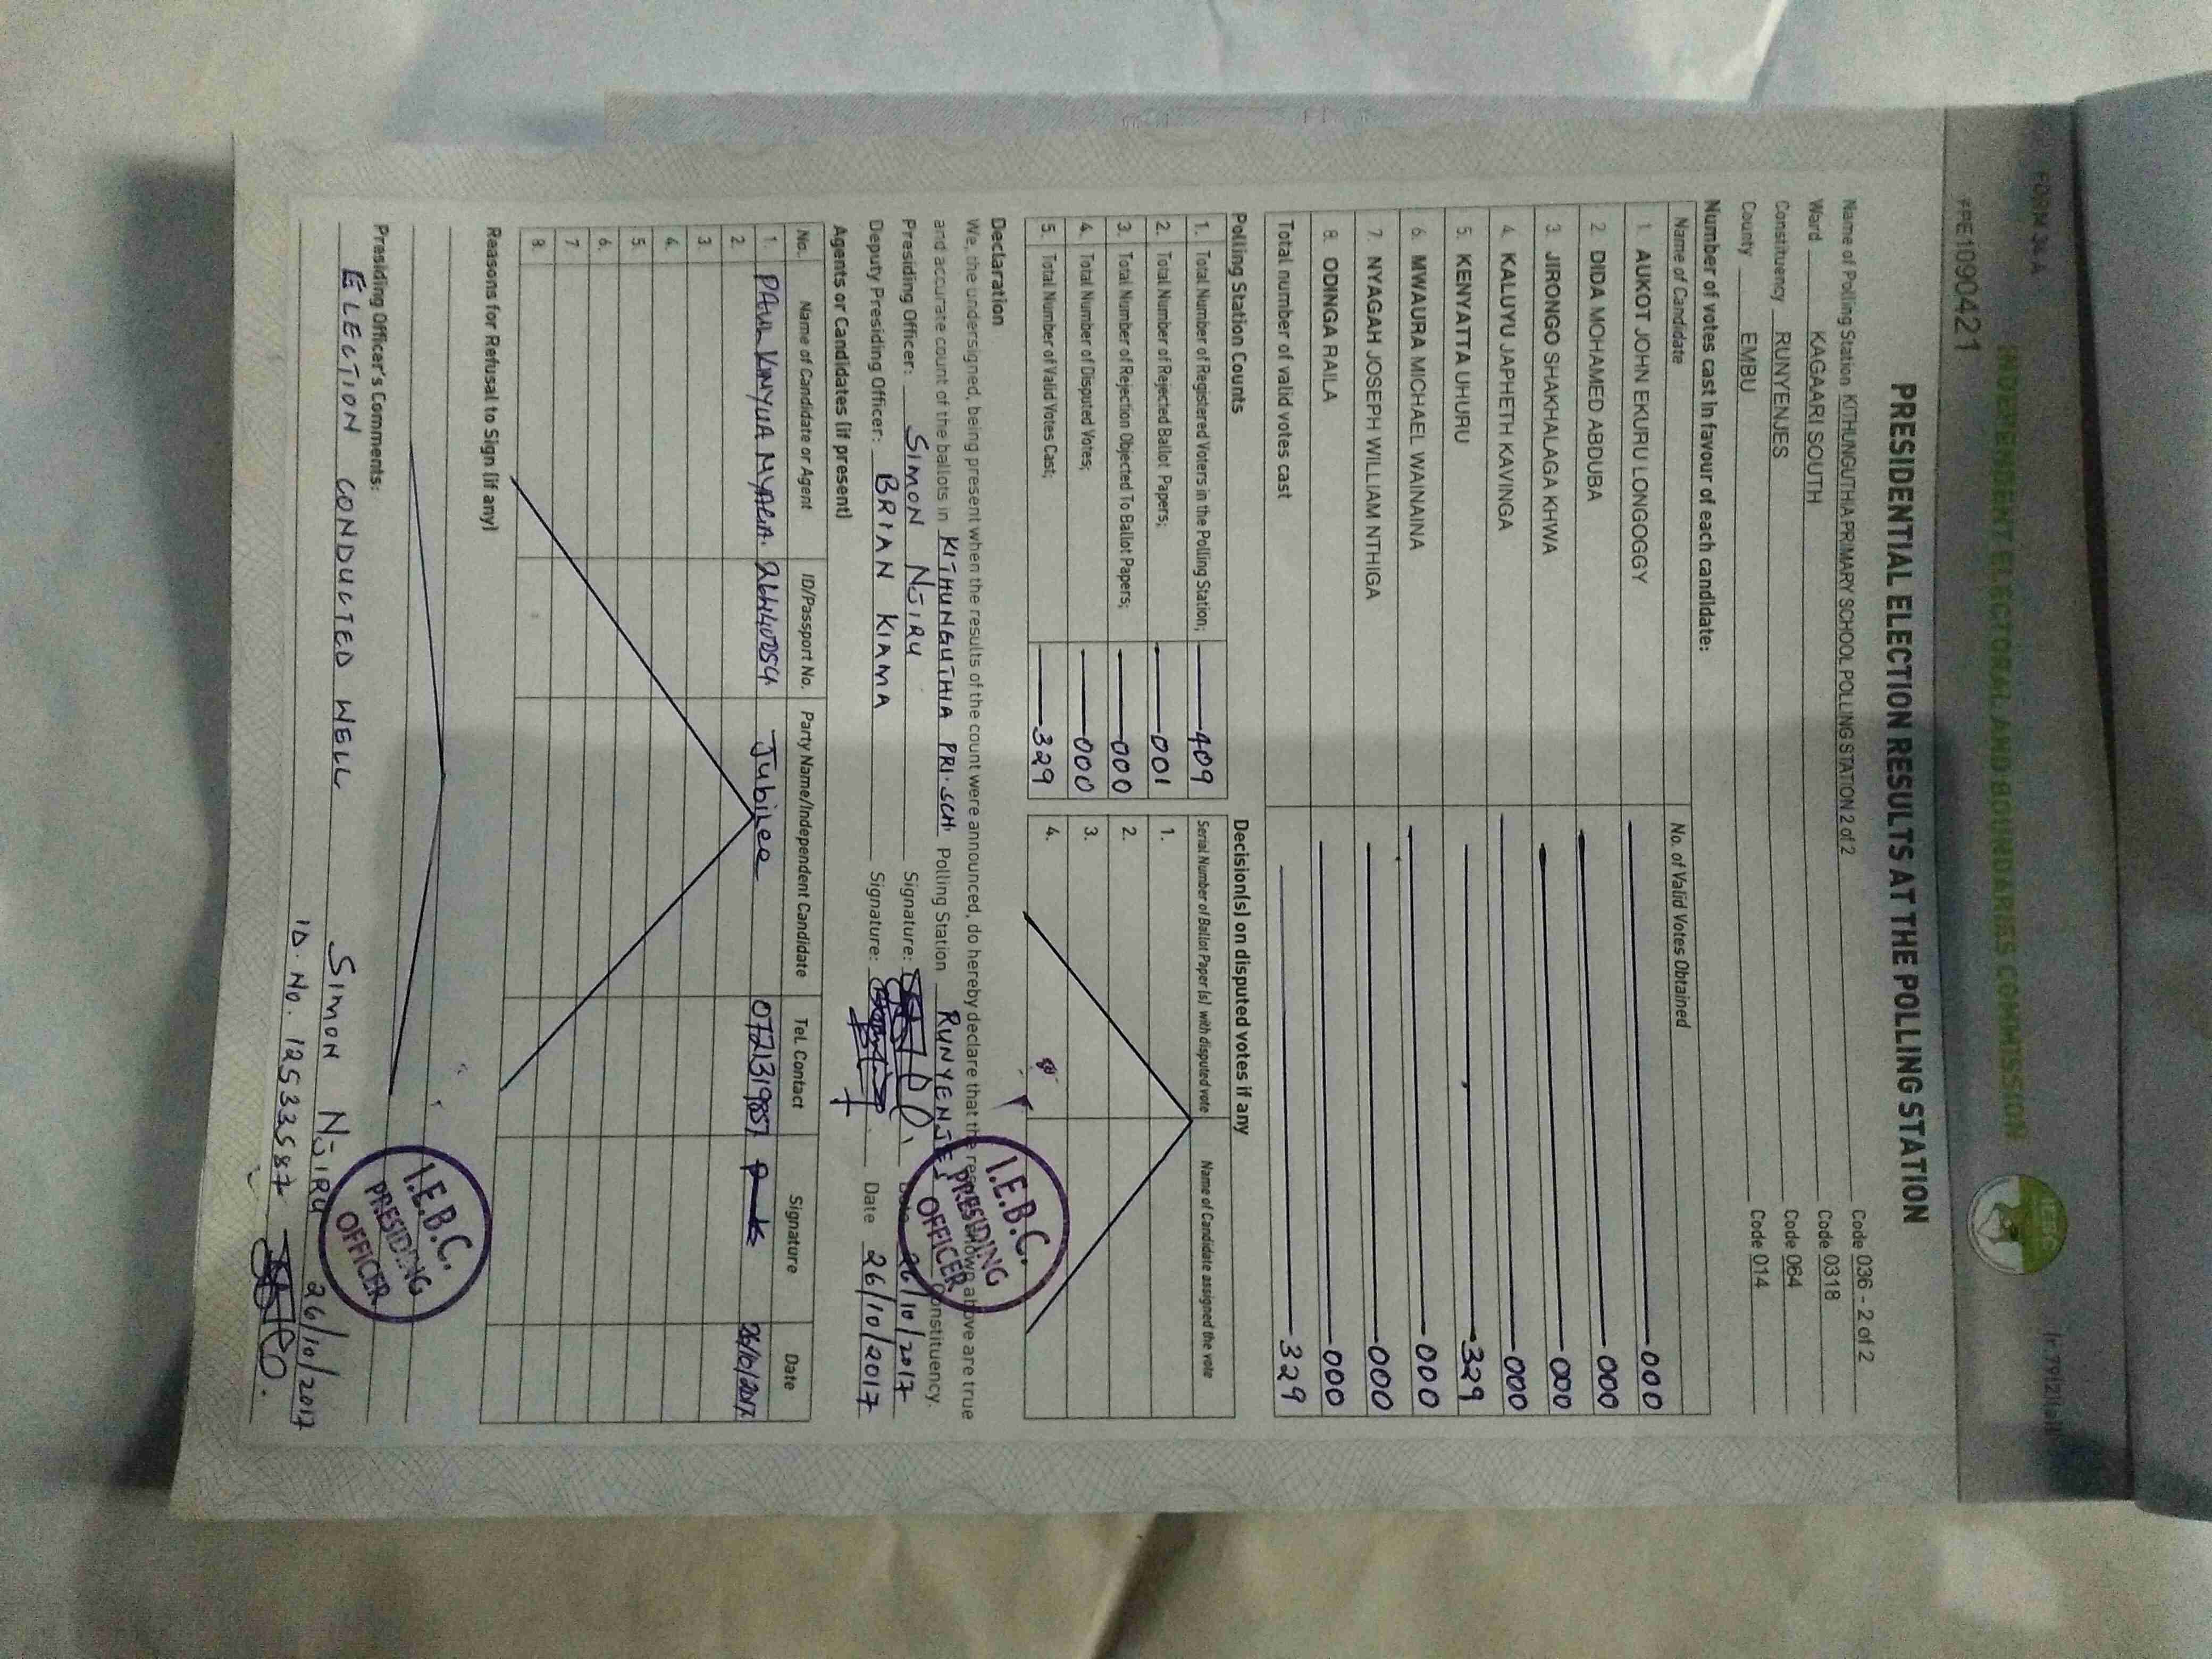 FORM 34 A
INDEPENDENT ELECTORAL AND BOUNDARIES COMMISSION
IEBC
PRE1090421
PRESIDENTIAL ELECTION RESULTS AT THE POLLING STATION
Name of Polling Station KITHUNGUTHIA PRIMARY SCHOOL POLLING STATION 2 of 2 Code 036 - 2 of 2
Ward KAGAARI SOUTH Code 0318
Constituency RUNYENJES Code 064
County EMBU Code 014
Number of votes cast in favour of each candidate:
Name of Candidate No. of Valid Votes Obtained
1. AUKOT JOHN EKURU LONGOGGY 000
2. DIDA MOHAMED ABDUBA 000
3. JIRONGO SHAKHALAGA KHWA 000
4. KALUYU JAPHETH KAVINGA 000
5. KENYATTA UHURU 329
6. MWAURA MICHAEL WAINAINA 000
7. NYAGAH JOSEPH WILLIAM NTHIGA 000
8. ODINGA RAILA 000
Total number of valid votes cast 329
Polling Station Counts
1. Total Number of Registered Voters in the Polling Station; 409
2. Total Number of Rejected Ballot Papers; 001
3. Total Number of Rejection Objected To Ballot Papers; 000
4. Total Number of Disputed Votes; 000
5. Total Number of Valid Votes Cast; 329
Decision(s) on disputed votes if any
Serial Number of Ballot Paper (s) with disputed vote Name of Candidate assigned the vote
1.
2.
3.
4.
Declaration
We, the undersigned, being present when the results of the count were announced, do hereby declare that the results shown above are true
and accurate count of the ballots in KITHUNGUTHIA PRI. SCH. Polling Station RUNYENJES Constituency.
Presiding Officer: SIMON NJIRU Signature: Date 26/10/2017
Deputy Presiding Officer: BRIAN KIAMA Signature: Date 26/10/2017
I.E.B.C.
PRESIDING
OFFICER
Agents or Candidates (if present)
No. Name of Candidate or Agent ID/Passport No. Party Name/Independent Candidate Tel. Contact Signature Date
1. PAUL KINYUA Jubilee 26/10/2017
2.
3
4.
5.
6.
7
8.
Reasons for Refusal to Sign (if any)
Presiding Officer's Comments:
ELECTION CONDUCTED WELL SIMON NJIRU 26/10/2017
ID. No. 12533587
I.E.B.C.
PRESIDING
OFFICER